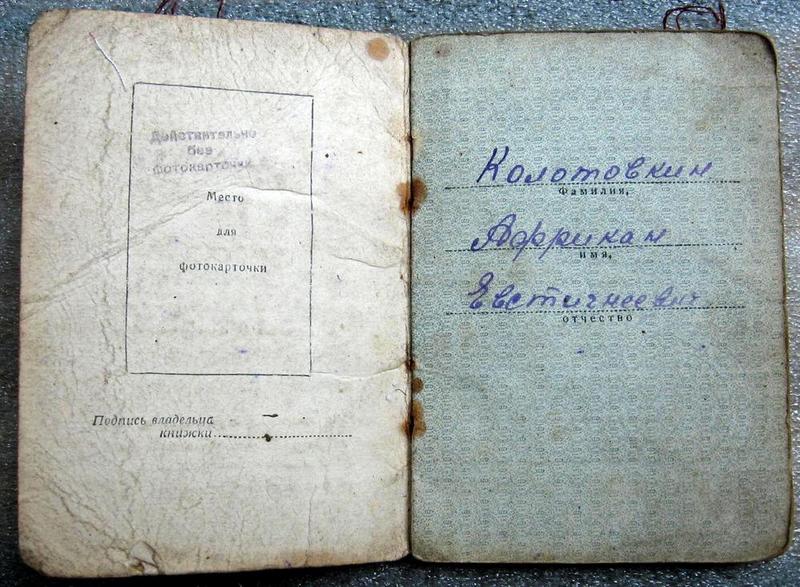 Действительно
без
фотокарточки
Место
для
фотокарточки
Подпись владельца
книжки
Колотовкин
Фамилия,
Африкан
имя,
Евстигнеевич
отчество